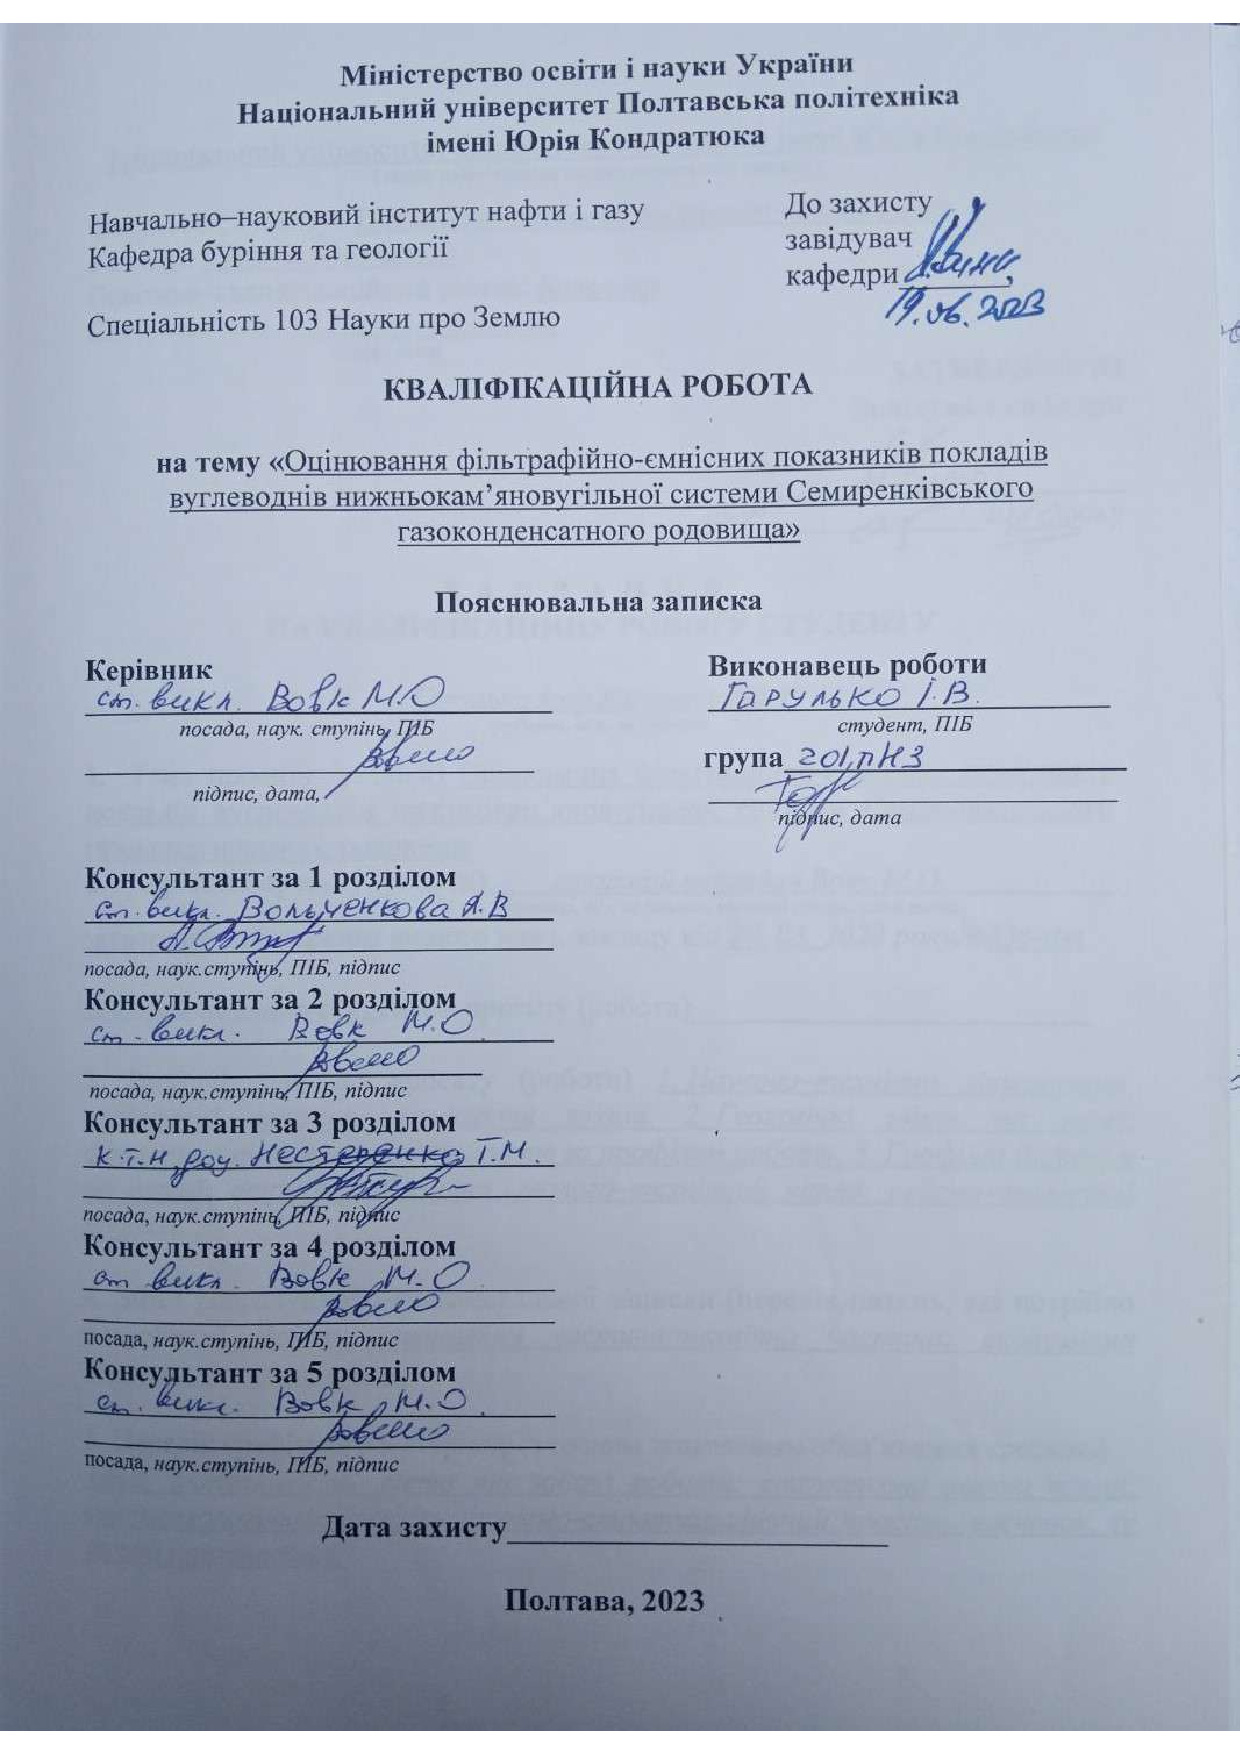 Міністерство освіти і науки України
Національний університет Полтавська політехніка
імені Юрія Кондратюка
Навчально–науковий інститут нафти і газу
Кафедра буріння та геології
Спеціальність 103 Науки про Землю
До захисту
завідувач
кафедри
19.06.2023
КВАЛІФІКАЦІЙНА РОБОТА
на тему «Оцінювання фільтрафійно-ємнісних показників покладів
вуглеводнів нижньокам’яновугільної системи Семиренківського
газоконденсатного родовища»
Пояснювальна записка
Керівник
ст. викл. Вовк М.О
посада, наук. ступінь, ПІБ
підпис, дата,
Виконавець роботи
Гарулько І.В.
студент, ПІБ
група 201пНЗ
підпис, дата
Консультант за 1 розділом
ст. викл. Вольченкова А.В
посада, наук.ступінь, ПІБ, підпис
Консультант за 2 розділом
ст. викл. Вовк М.О
посада, наук.ступінь, ПІБ, підпис
Консультант за 3 розділом
к.т.н, доц. Нестеренко Т.М.
посада, наук.ступінь, ПІБ, підпис
Консультант за 4 розділом
ст викл. Вовк М.О.
посада, наук.ступінь, ПІБ, підпис
Консультант за 5 розділом
ст. викл. Вовк М.О.
посада, наук.ступінь, ПІБ, підпис
Дата захисту
Полтава, 2023